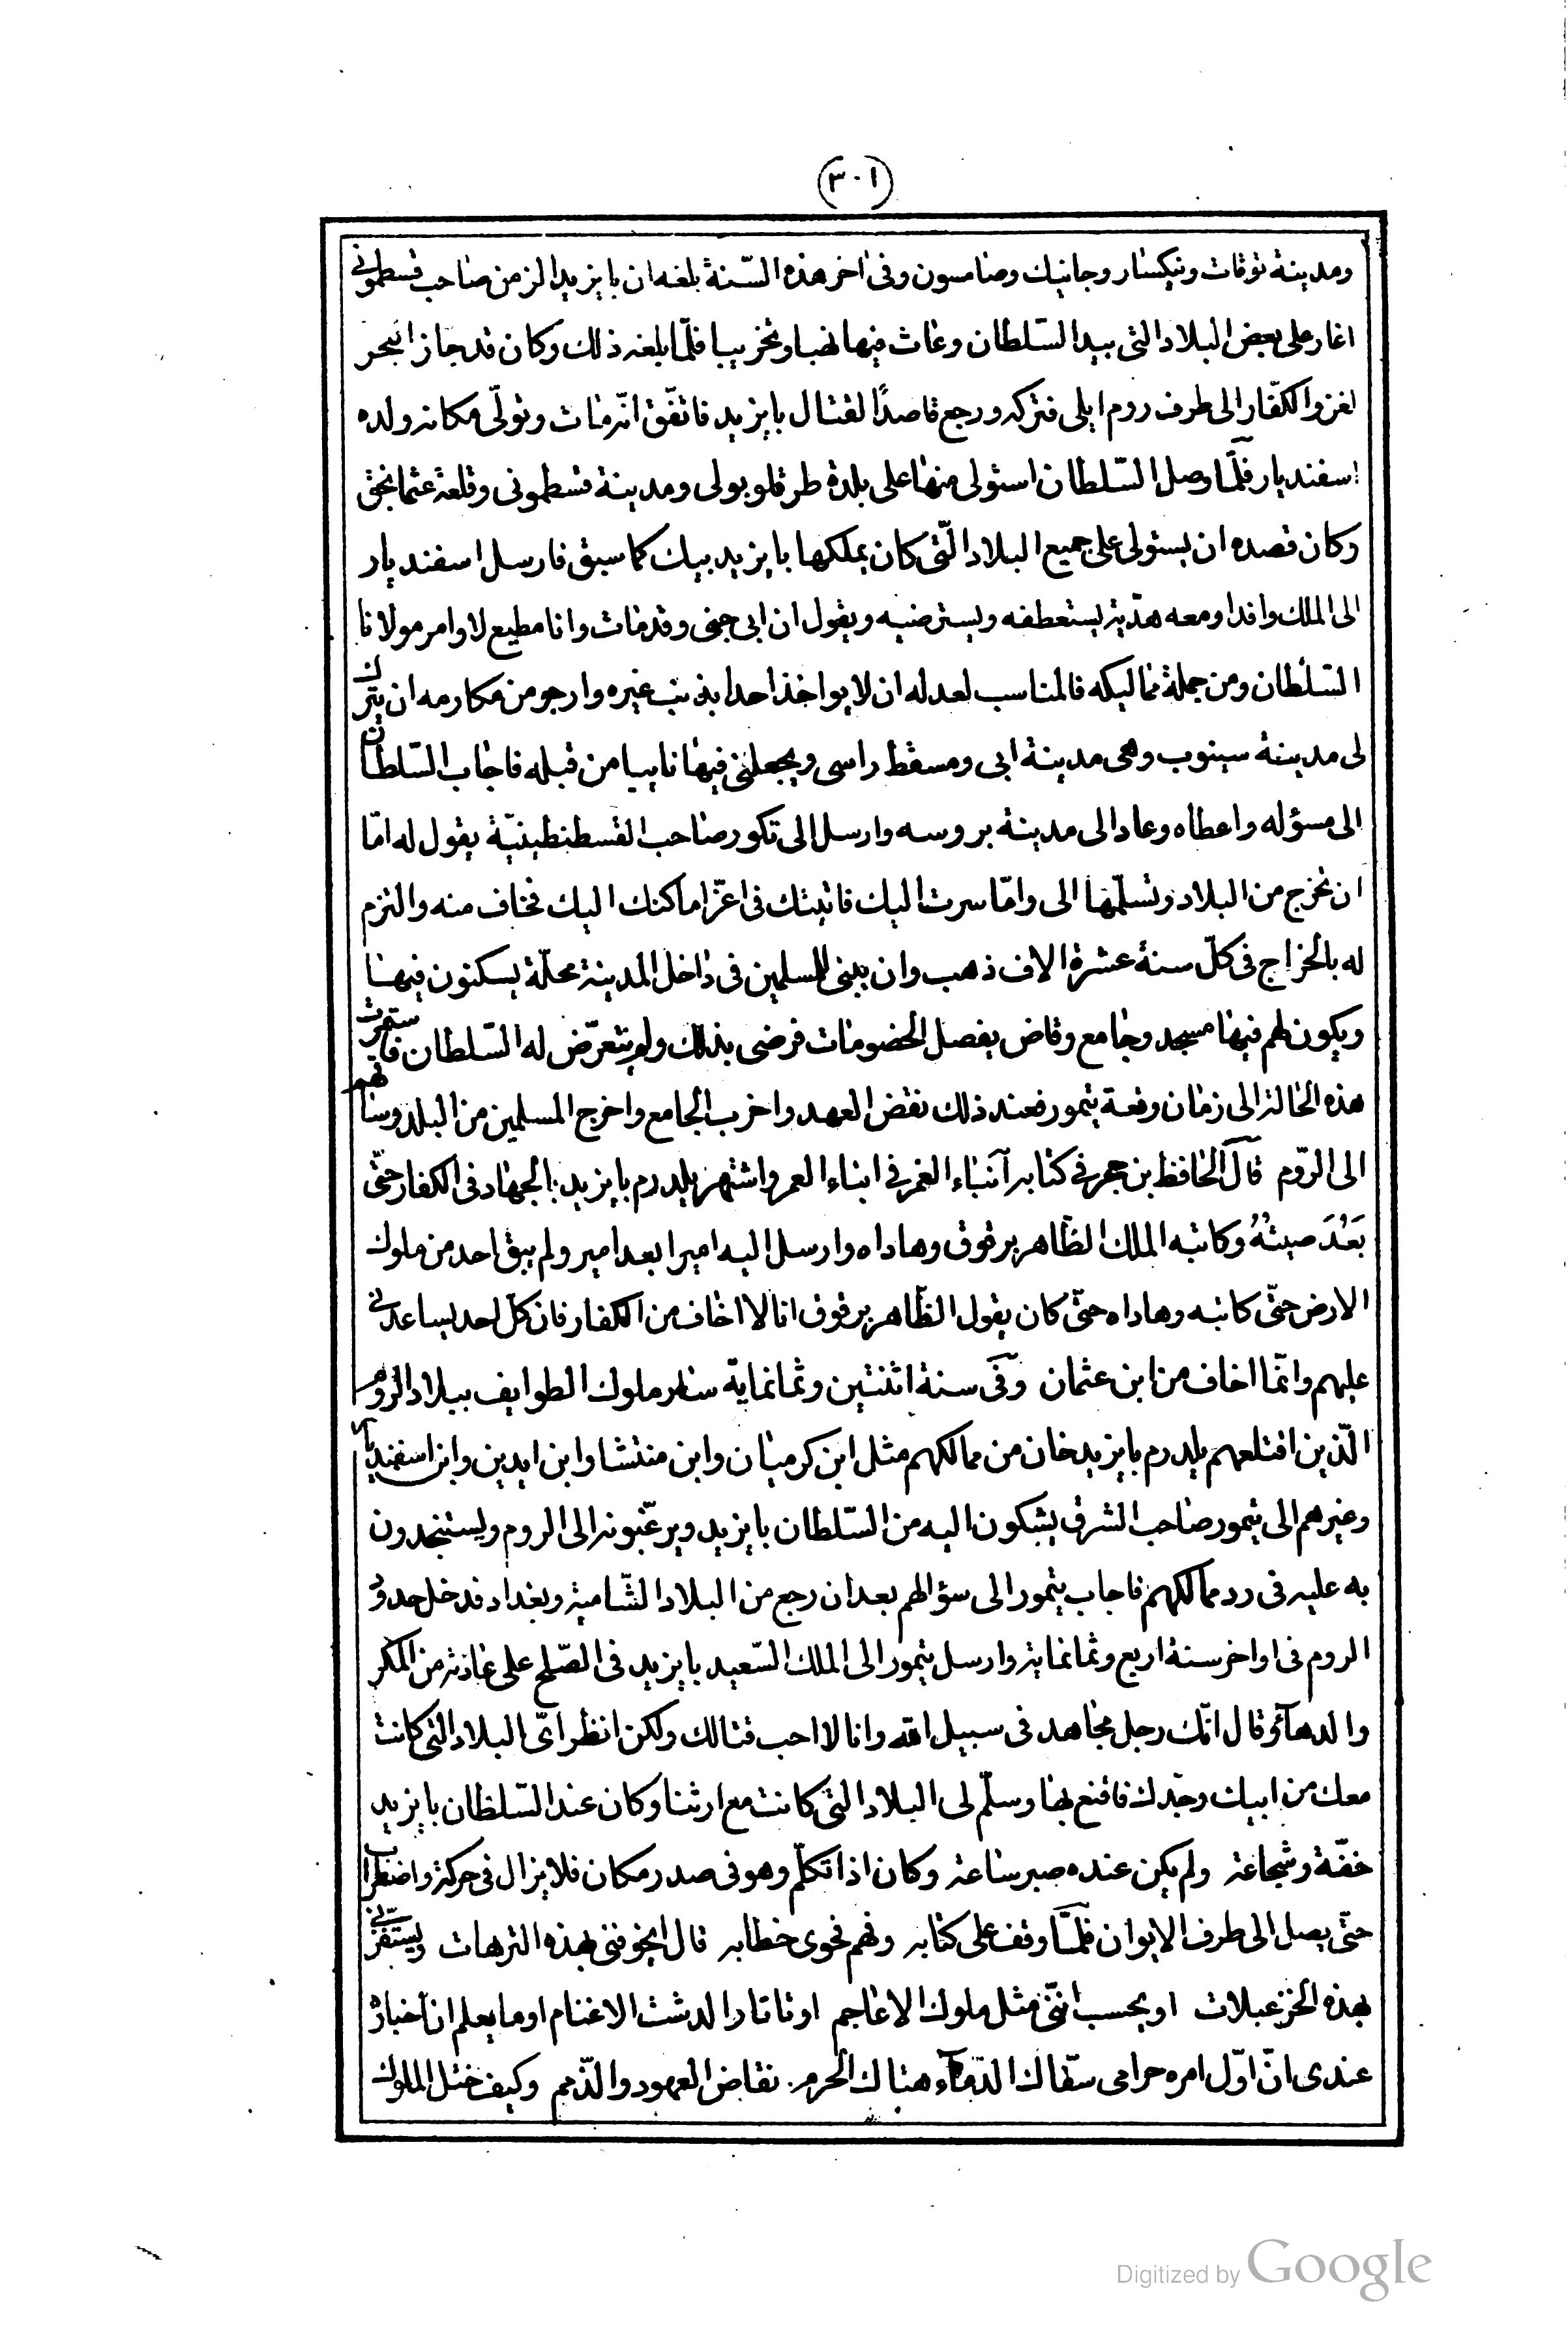 (٣٠١)
ومدينة توقات ونيكسار وجانيك وصامسون وفى اخر هذه السّنة بلغه ان بايزيد الزمن صاحب قسطمونى
اغار على بعض البلاد التى بيد السّلطان وعاث فيها نهبا وتخريبا فلمّا بلغه ذلك وكان قد جاز البحر
لغزو الكفّار الى طرف روم ايلى فتركه ورجع قاصدًا لقتال بايزيد فاتفّق انّه مات وتولّى مكانه ولده
اسفنديار فلمّا وصل السّلطان استولى منها على بلدة طرقلو بولى ومدينة قسطمونى وقلعة عثمانجق
وكان قصده ان يستولى على جميع البلاد الّتى كان يملكها بايزيد بيك كما سبق فارسل اسفنديار
الى الملك وافدا ومعه هديّة يستعطفه ويسترضيه ويقول ان ابى جنى وقد مات وانا مطيع لاوامر مولانا
السّلطان ومن جملة مماليكه فالمناسب لعدله ان لا يواخذ احدا بذنب غيره وارجو من مكارمه ان يترك
لى مدينة سينوب وهى مدينة ابى ومسقط راسى ويجعلنى فيها نايبا من قبله فاجاب السّلطان
الى مسؤله واعطاه وعاد الى مدينة بروسه وارسل الى تكور صاحب القسطنطينيّة يقول له امّا
ان تخرج من البلاد وتسلّمها الى وامّا سرت اليك فاتيتك فى اعزّ اماكنك اليك فخاف منه والتزم
له بالخراج فى كلّ سنة عشرة الاف ذهب وان يبنى للمسلمين فى داخل المدينة محلّة يسكنون فيها
ويكون لهم فيها مسجد وجامع وقاض يفصل الخصومات فرضى بذلك ولم يتعرّض له السّلطان فاستمرت
هذه الحالة الى زمان وقعة تيمور فعند ذلك نقض العهد واخرب الجامع واخرج المسلمين من البلد وساقهم
الى الرّوم قال الحافظ بن حجر فى كتابه آنباء الغمر فى ابناء العمر واشتهر يلدرم بايزيد بالجهاد فى الكفار حتّى
بَعُدَ صيتُهُ وكاتبه الملك الظّاهر برقوق وهاداه وارسل اليه اميرا بعد امير ولم يبق احد من ملوك
الارض حتّى كاتبه وهاداه حتّى كان يقول الظّاهر برقوق انا لا اخاف من الكفار فان كل احد يساعدنى
عليهم وانّما اخاف من ابن عثمان وفى سنة اثنتين وثمانماية سار ملوك الطوايف ببلاد الروم
الّذين اقتلعهم يلدرم بايزيد خان من ممالكهم مثل ابن كرميان وابن منتشا وابن ايدين وابن اسفنديار
وغيرهم الى تيمور صاحب الشرق يشكون اليه من السّلطان بايزيد ويرغّبونه الى الروم ويستنجدون
به عليه فى رد ممالكهم فاجاب تيمور الى سؤالهم بعد ان رجع من البلاد الشّامية وبغداد فدخل حدود
الروم فى اواخر سنة اربع وثمانماية وارسل تيمور الى الملك السّعيد بايزيد فى الصّلح على عادته من المكر
والدهآء وقال انّك رجل مجاهد فى سبيل الله وانا لا احب قتالك ولكن انظر اىّ البلاد التى كانت
معك من ابيك وجدّك فاقنع بها وسلّم لى البلاد التى كانت مع ارتنا وكان عند السّلطان بايزيد
خفّة وشجاعة ولم يكن عنده صبر ساعة وكان اذا تكلّم وهو فى صدر مكان فلا يزال فى حركة واضطراب
حتّى يصل الى طرف الايوان فلمّا وقف على كتابه وفهم فحوى خطابه قال ايخوفنى بهذه الترهات ويستفزّنى
بهذه الخزعبلات او يحسب انّنى مثل ملوك الاعاجم او تاتار الدشت الاغنام او ما يعلم ان اخباره
عندى انّ اوّل امره حرامى سفّاك الدّمآء هتاك الحرم نقاض العهود والذّمم وكيف ختل الملوك
Digitized by Google